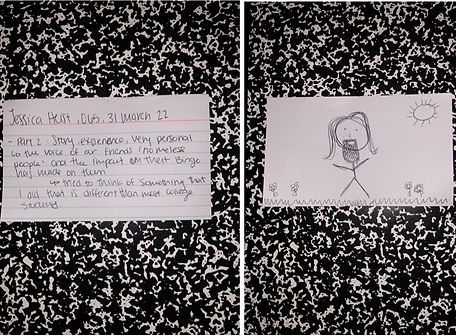 Jessica Heist, 065, 31 March 22
- Part 2: Story, experience, very personal
in the voice of our friends 'homeless
people' and the impact Bingo
has made on them
↳ tried to think of something that
I did that is different than most college
students.